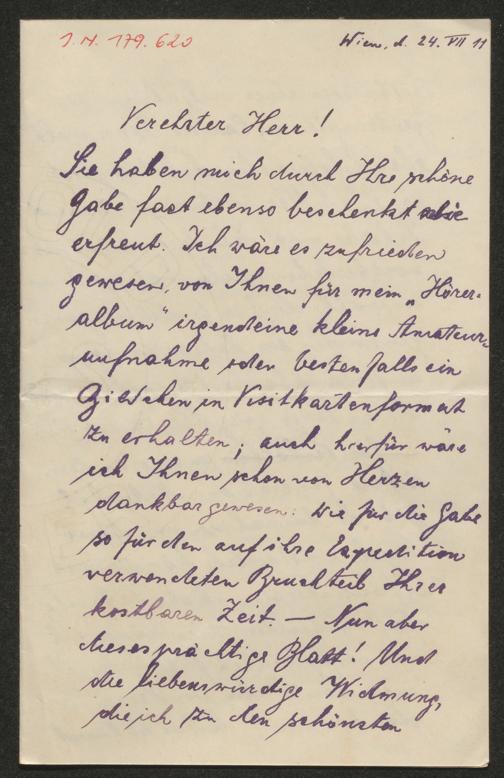 I. N. 179.620
Wien, d. 24. VII 11
Verehrter Herr!
Sie haben mich durch Ihre schöne
Gabe fast ebenso beschenkt wie
erfreut. Ich wäre es zufrieden
gewesen, von Ihnen für mein „Hörer-
album" irgendeine kleine Amateur-
aufnahme oder bestenfalls ein
Bildchen in Visitkartenformat
zu erhalten; auch hierfür wäre
ich Ihnen schon von Herzen
dankbar gewesen: wie für die Gabe
so für den auf ihre Expedition
verwendeten Bruchteil Ihrer
kostbaren Zeit. — Nun aber
dieses prächtige Blatt! Und
die liebenswürdige Widmung,
die ich zu den schönsten